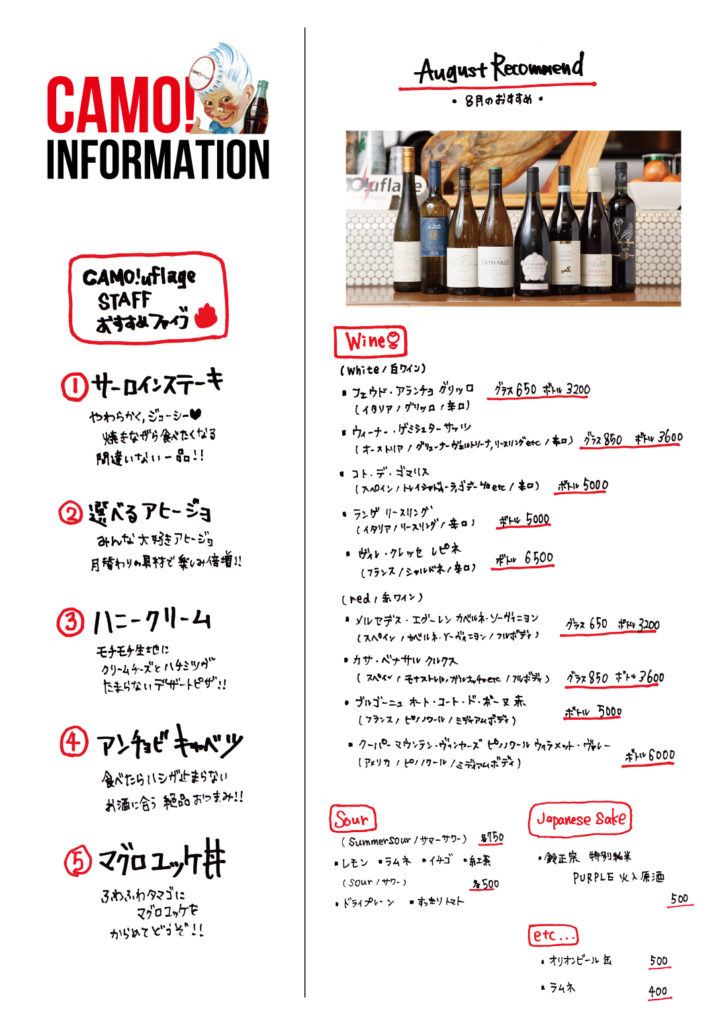 CAMO!
INFORMATION
CAMO!uflage
STAFF
おすすめファイブ
① サーロインステーキ
やわらかく,ジューシー♥
焼きながら食べたくなる
間違いない一品!!
② 選べるアヒージョ
みんな大好きアヒージョ
月替わりの具材で楽しみ倍増!!
③ ハニークリーム
モチモチ生地に
クリームチーズとハチミツが
たまらないデザートピザ!!
④ アンチョビキャベツ
食べたらハシが止まらない
お酒に合う絶品おつまみ!!
⑤ マグロユッケ丼
ふわふわタマゴに
マグロユッケを
からめてどうぞ!!
August Recommend
・8月のおすすめ・
uflage
GOMARIZ
Wine
(White/白ワイン)
・フェウド・アランチョ グリッロ グラス650 ボトル3200
(イタリア/グリッロ/辛口)
・ウィーナー・ゲミシュターサッツ
(オーストリア/グリューナーヴェルトリーナ,リースリングetc/辛口) グラス850 ボトル3600
・コト・デ・ゴマリス
(スペイン/トレイシャドゥーラ,ゴデーリョetc/辛口) ボトル5000
・ランゲ リースリング
(イタリア/リースリング/辛口) ボトル5000
・ヴィレ・クレッセ レピネ
(フランス/シャルドネ/辛口) ボトル6500
(red/赤ワイン)
・メルセデス・エグーレン カベルネ・ソーヴィニヨン
(スペイン/カベルネ・ソーヴィニヨン/フルボディ) グラス650 ボトル3200
・カサ・ベナサル クルクス
(スペイン/モナストレル,ガルナッチャetc/フルボディ) グラス850 ボトル3600
・ブルゴーニュ オート・コート・ド・ボーヌ 赤
(フランス/ピノノワール/ミディアムボディ) ボトル5000
・クーパーマウンテン・ヴィンヤーズ ピノノワール ウィラメット・ヴァレー
(アメリカ/ピノノワール/ミディアムボディ) ボトル6000
Sour
(Summersour/サマーサワー) 各750
・レモン ・ラムネ ・イチゴ ・紅茶
(Sour/サワー) 各500
・ドライプレーン ・すっきりトマト
Japanese Sake
・鈴正宗 特別純米
PURPLE 火入原酒
500
etc...
・オリオンビール缶 500
・ラムネ 400